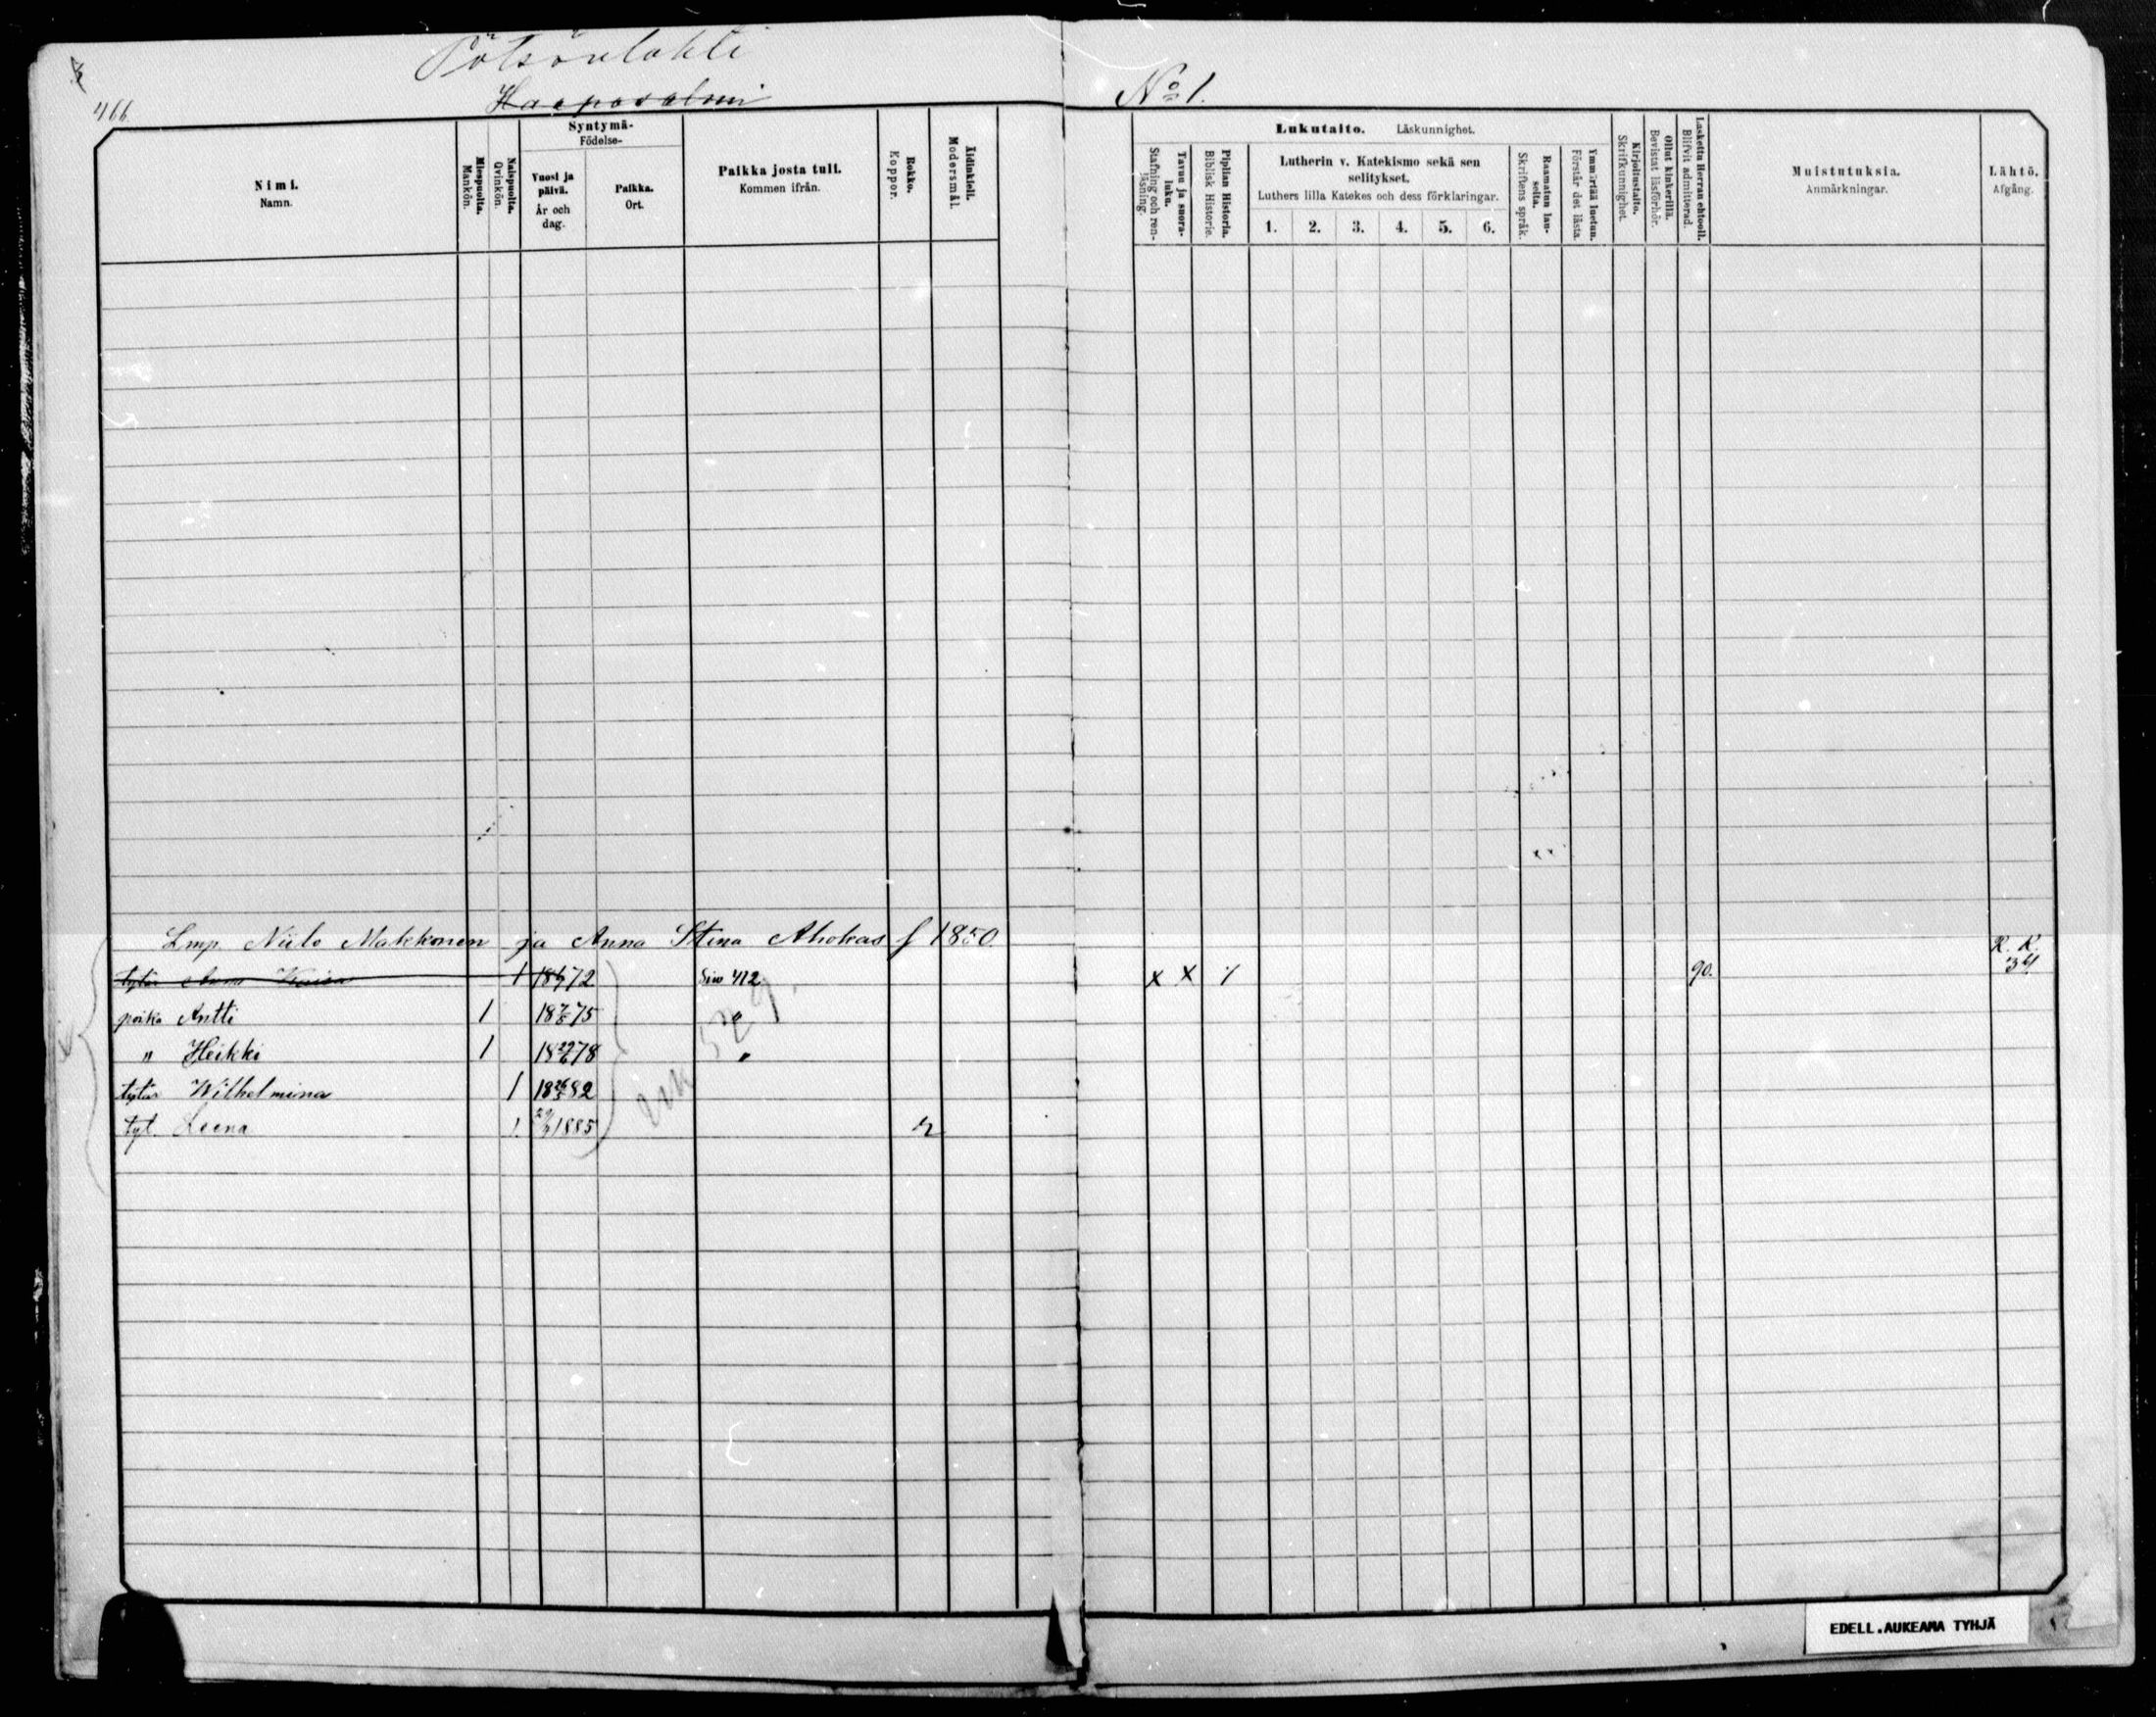 Pötsönlahti
466
Haaposalmi
No 1.
Nimi.
Namn.
Miespuolta.
Mankön.
Naispuolta.
Qvinkön.
Syntymä-
Födelse-
Vuosi ja
päivä.
År och
dag.
Paikka.
Ort.
Paikka josta tuli.
Kommen ifrån.
Rokko.
Koppor.
Äidinkieli.
Modersmål.
Lukutaito. Läskunnighet.
Tavuu ja suora-
luku.
Stafning och ren-
läsning.
Piplian Historia.
Biblisk Historie.
Lutherin v. Katekismo sekä sen
selitykset.
Luthers lilla Katekes och dess förklaringar.
1. 2. 3. 4. 5. 6.
Raamatun lau-
seita.
Skriftens språk.
Ymmärtää luetun.
Förstår det lästa.
Kirjoitustaito.
Skrifkunnighet.
Ollut kinkerillä.
Bevistat läsförhör.
Laskettu Herran ehtooll.
Blifvit admitterad.
Muistutuksia.
Anmärkningar.
Lähtö.
Afgång.
Lmp. Niilo Makkonen ja Anna Stina Ahokas f 1850
R. K.
tytär Anna Kaisa 1 72 Siv 412 x x 90. 34
poika Antti 1 75 "
" Heikki 1 78 "
tytär Wilhelmina 1 82
529.
tyt. Leena 1. 1885
EDELL.AUKEAMA TYHJÄ